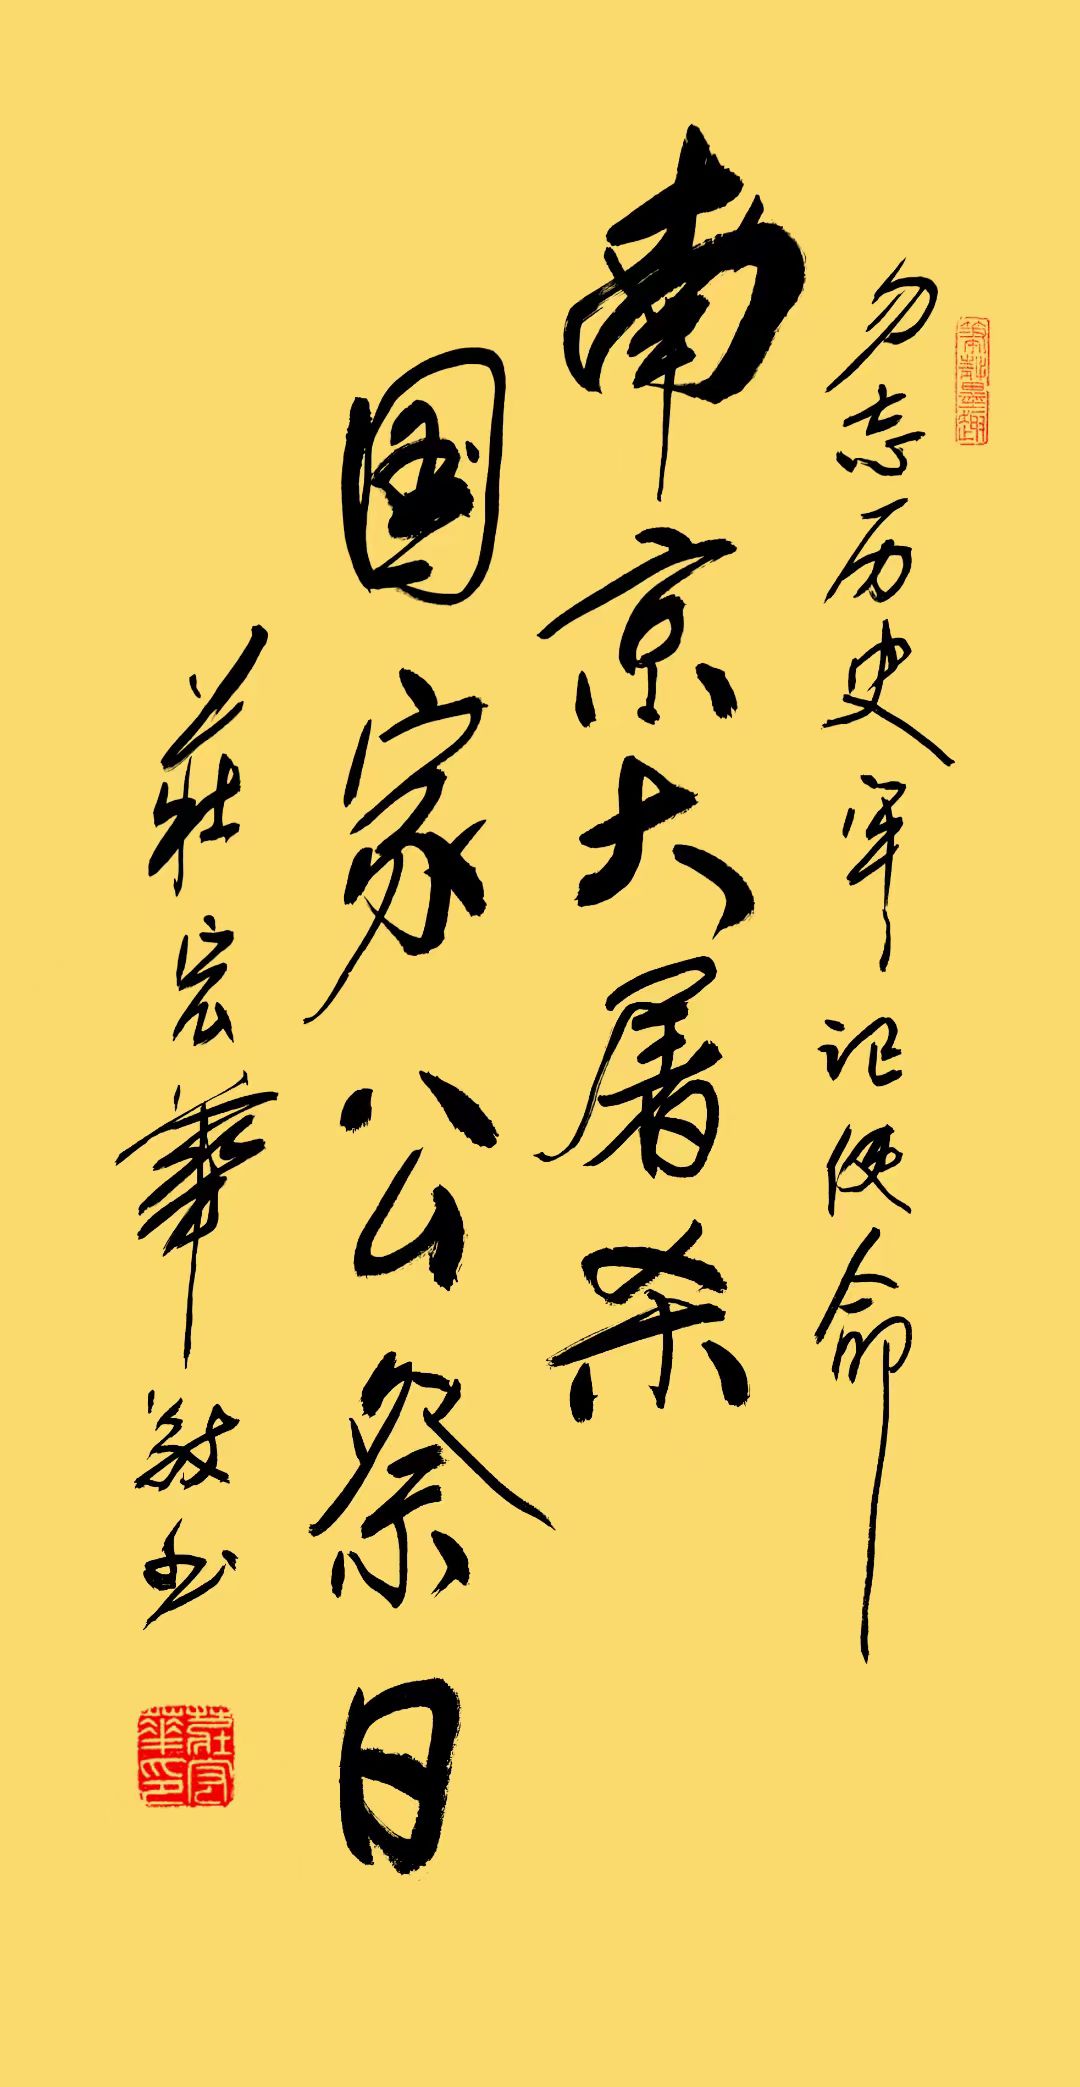 勿忘历史牢记使命
南京大屠杀
国家公祭日
莊宏華敬书
莊宏華印